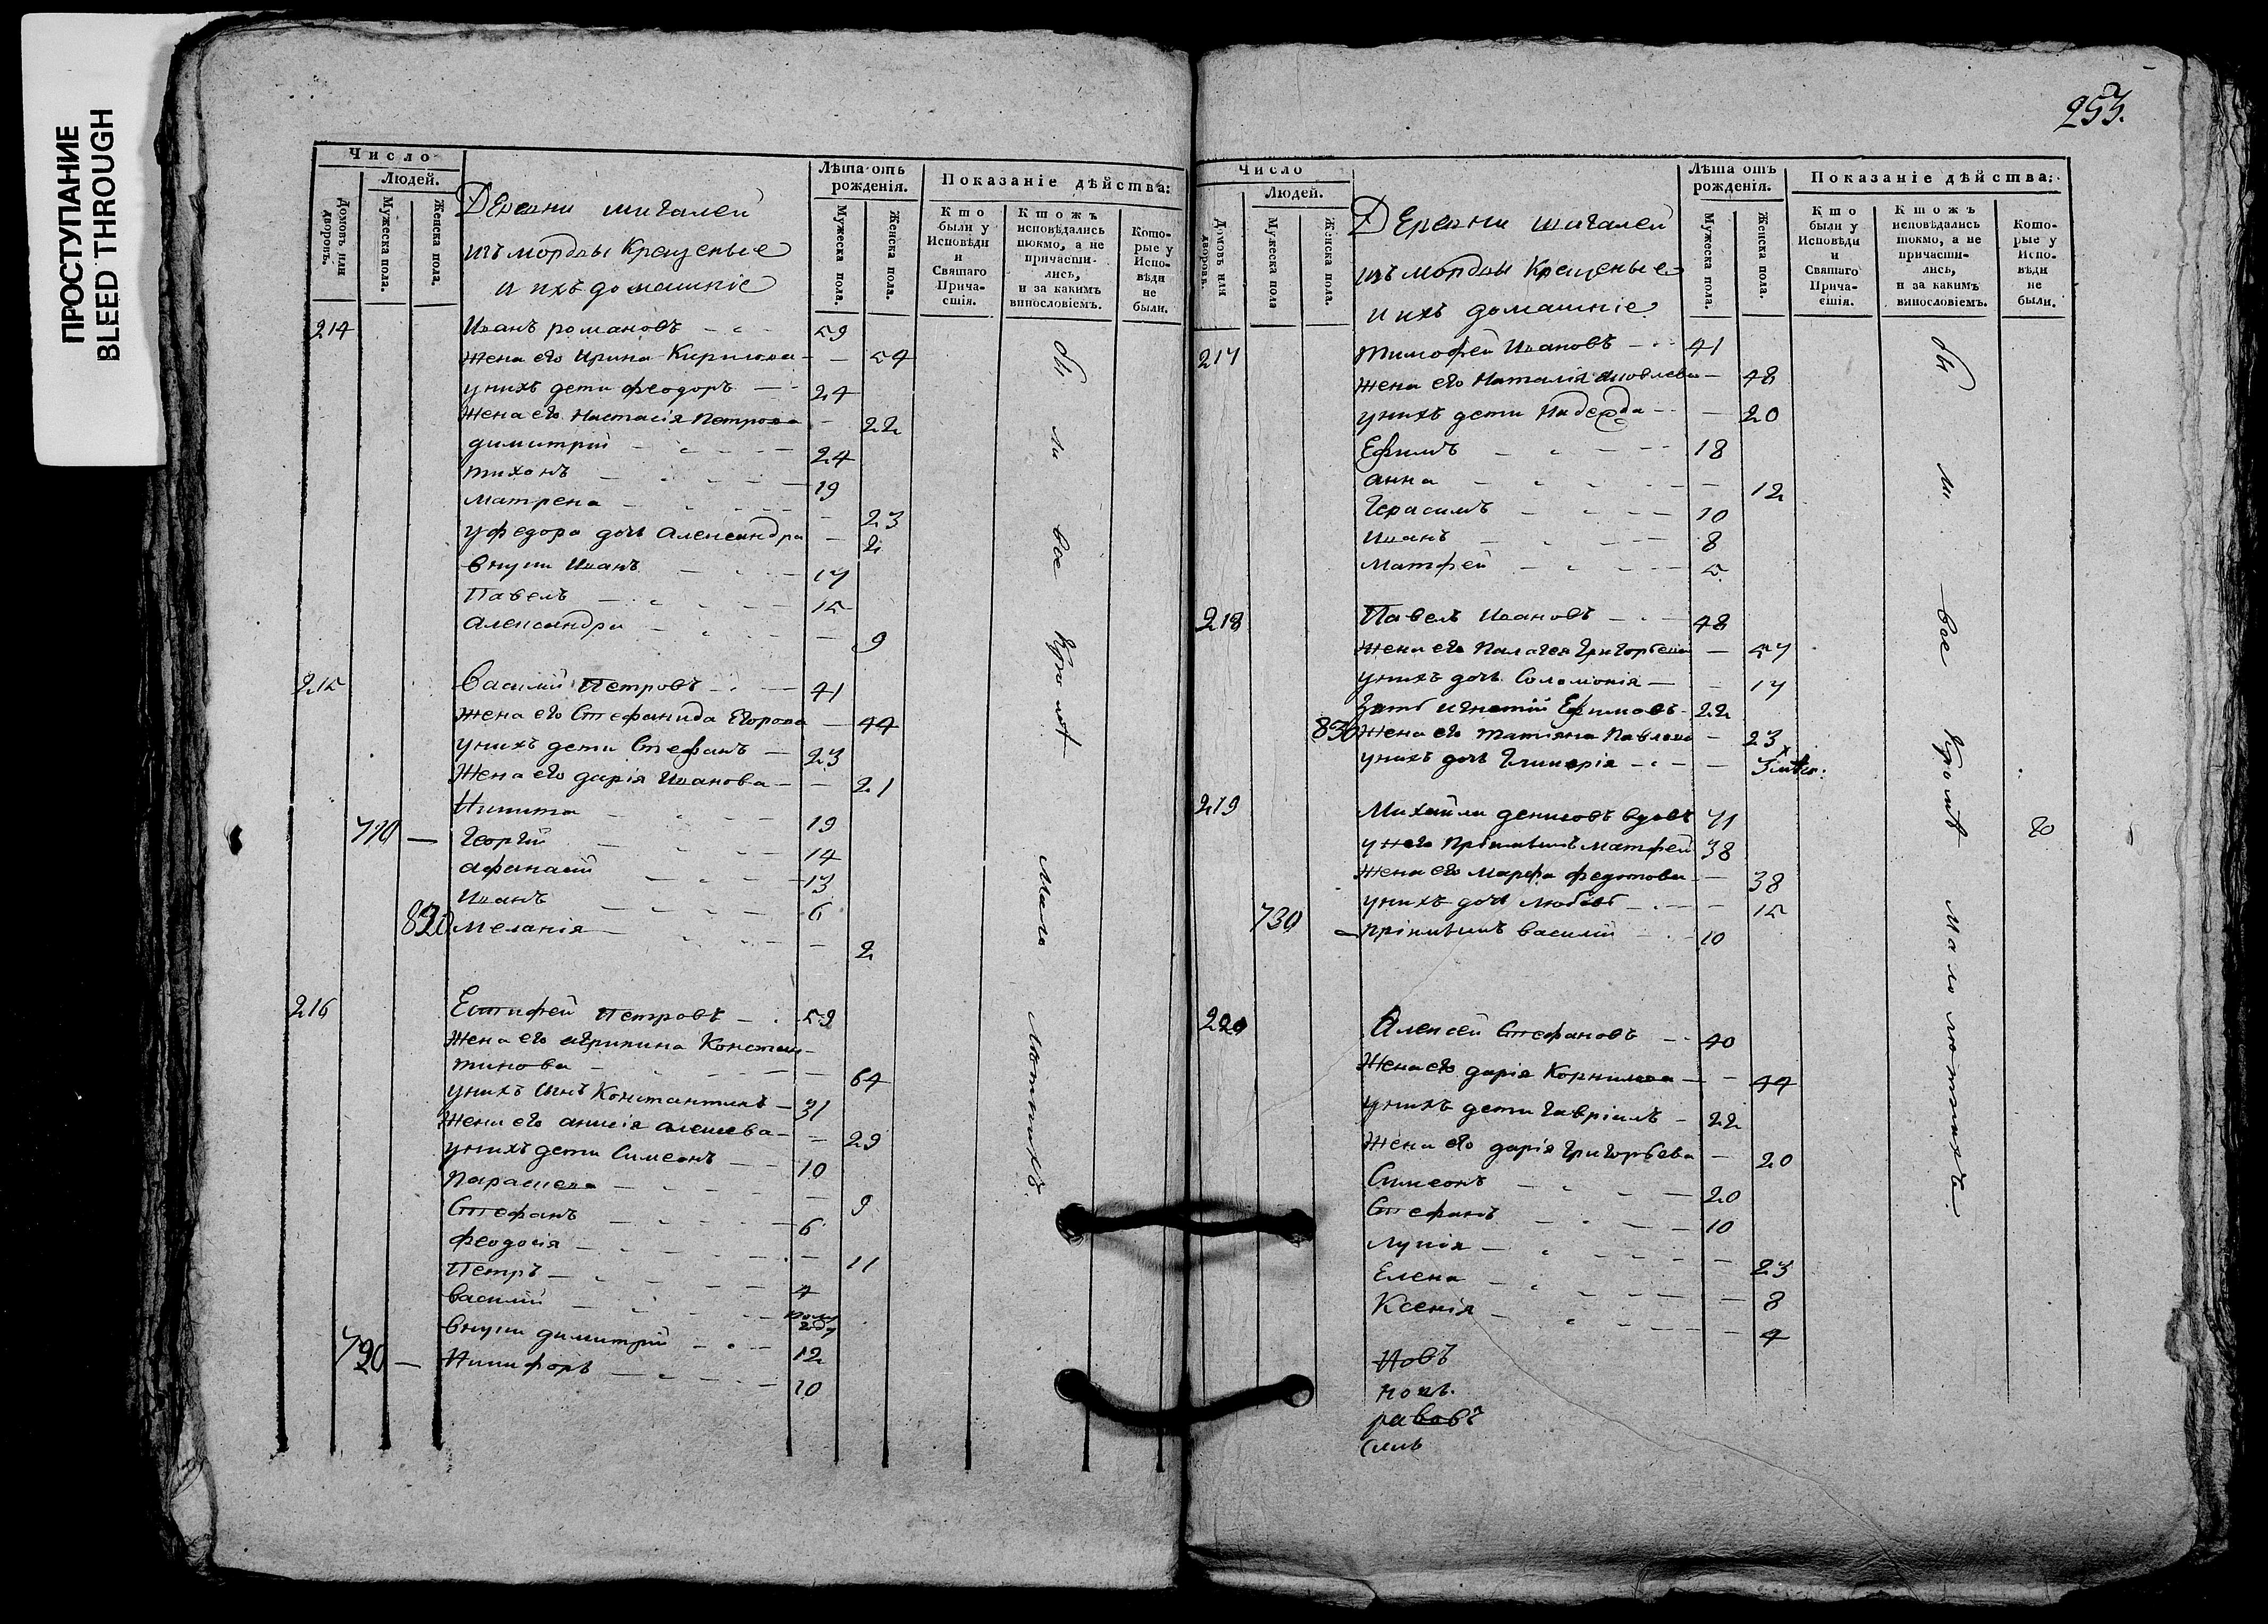 ПРОСТУПАНИЕ
BLEED THROUGH
Число
Людей.
Домовъ или дворовъ.
Мужеска пола.
Женска пола.
Деревни шигалей
изъ мордвы Крещеные
и ихъ домашніе
Лѣта отъ рожденія.
Мужеска пола.
Женска пола.
Показаніе дѣйства:
Кто были у Исповѣди и Святаго Причастія.
Ктожъ исповѣдались токмо, а не причастились, и за какимъ винословіемъ.
Которые у Исповѣди не были.
214 Иванъ романовъ 59
жена его Ирина Кирилова 54
унихъ дети феодоръ 24
жена его Настасія Петрова 22
димитрий 24
тихонъ 19
матрена 23
уфедора дочь Александра 2
внуки Иванъ 17
Павелъ 15
александра 9
215 Василий Петровъ 41
жена его Стефанида Егорова 44
унихъ дети Стефанъ 23
Жена его дарія Иванова 21
Никита 19
710 — Георгий 14
афанасий 13
Иванъ 6
820 меланія 2
216 Естифей Петровъ 59
жена его агрипина Констан-
тинова 64
унихъ сынъ Константинъ 31
жена его анисія алексева 29
унихъ дети Симеонъ 10
Парасева 9
Стефанъ 6
феодосія 11
Петръ 4
василий полу году
внуки димитрий 12
720 — Никифоръ 10
бы ли все кромѣ Мало лѣтнихъ.
253.
Число
Людей.
Домовъ или дворовъ.
Мужеска пола
Женска пола.
Деревни шигалей
изъ мордвы Крещеные
и ихъ домашніе
Лѣта отъ рожденія.
Мужеска пола.
Женска пола.
Показаніе дѣйства:
Кто были у Исповѣди и Святаго Причастія.
Ктожъ исповѣдались токмо, а не причастились, и за какимъ винословіемъ.
Которые у Исповѣди не были.
217 тимофей Ивановъ 41
жена его Наталія яковлева 48
унихъ дети Надежда 20
Ефимъ 18
анна 12
Герасимъ 10
Иванъ 8
Матфей 5
218 Павелъ Ивановъ 48
жена его Палагея Григорьева 57
унихъ дочь Соломонія 17
Зять игнатий Ефимовъ 22
830 жена его татіяна Павлова 23
унихъ дочь Гликерія 3 мѣся:
219 Михайла денисовъ вдовъ 71
унего Пріимышъ матфей 38
жена его марфа федотова 38
унихъ дочь любовь 15
730 — пріимышъ василий 10
220 Алексей Стефановъ 40
Жена его дарія Корнилова 44
унихъ дети гавріилъ 22
жена его дарія Григорьева 20
Симеонъ 20
Стефанъ 10
лукія 23
Елена 8
Ксенія 4
бы ли все кромѣ малолѣтнихъ.